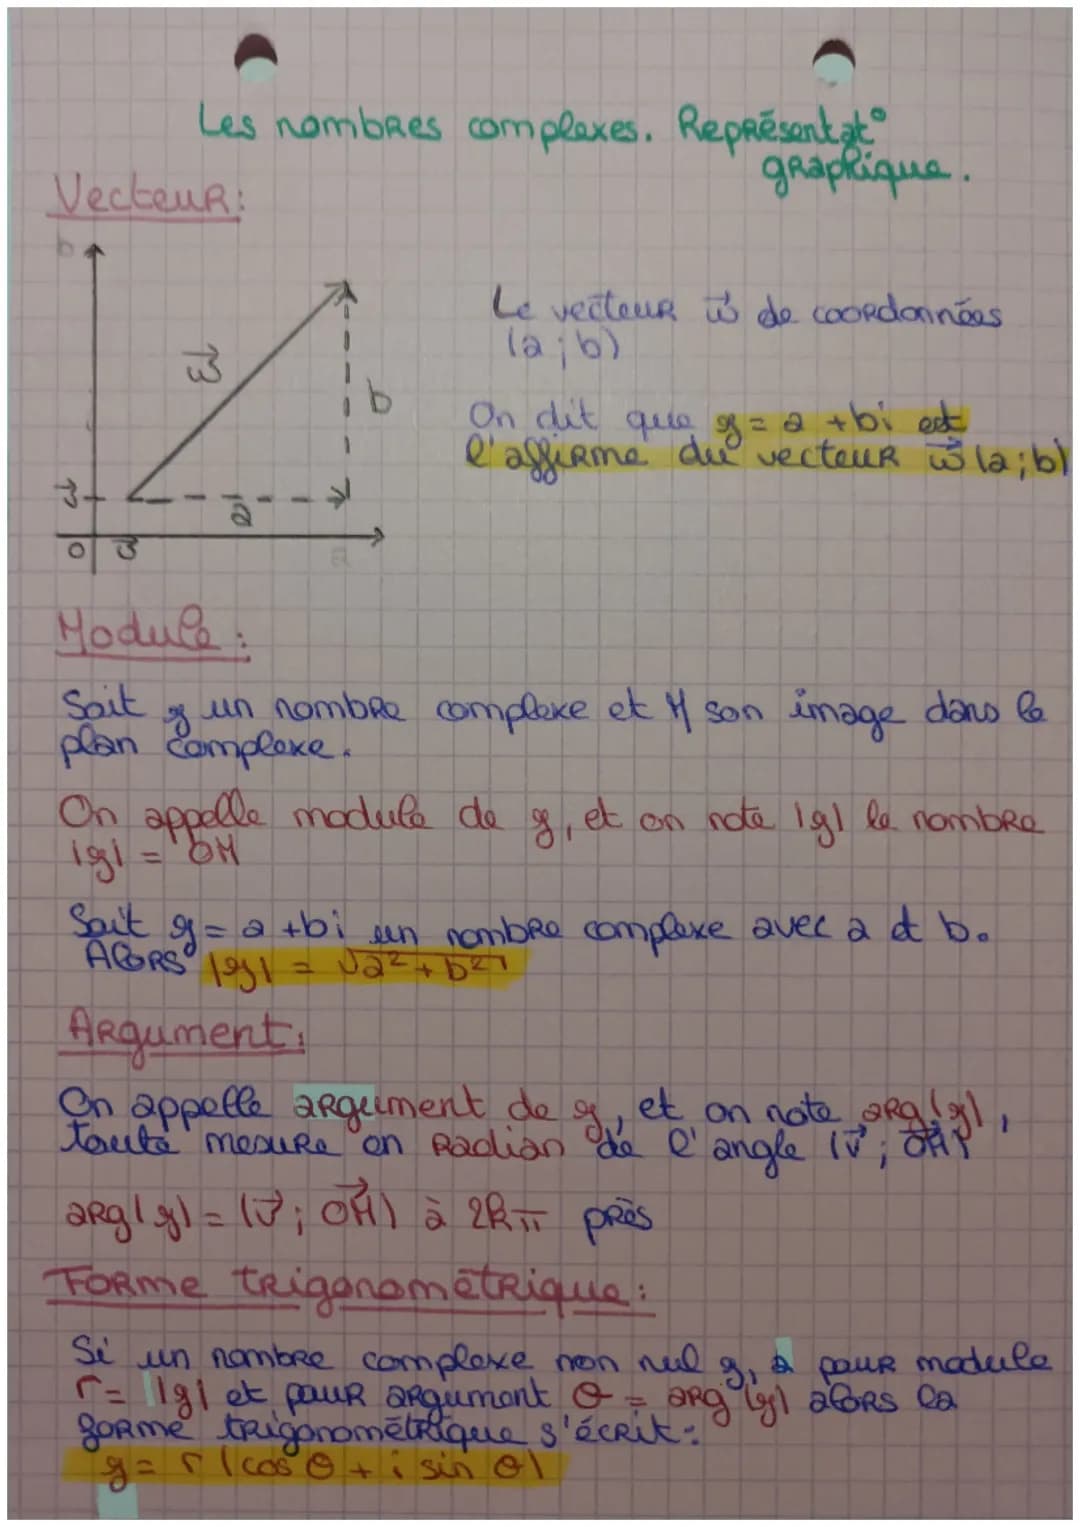 Les nombres complexes. Représentat°
graphique.
Vecteur:
b
w⃗
b
v⃗
a
0
u⃗
a
Le vecteur w⃗ de coordonnées
(a ; b)
On dit que z = a + bi est
l'affirme du vecteur w⃗ (a ; b)
Module :
Soit z un nombre complexe et M son image dans le
plan complexe.
On appelle module de z, et on note |z| le nombre
|z| = OM
Soit z = a + bi un nombre complexe avec a et b.
Alors |z| = √a² + b²
Argument:
On appelle argument de z, et on note arg(z),
toute mesure en radian de l'angle (v⃗ ; OM⃗)
arg(z) = (v⃗ ; OM⃗) à 2kπ près
Forme trigonométrique :
Si un nombre complexe non nul z, a pour module
r = |z| et pour argument θ = arg(z) alors la
forme trigonométrique s'écrit :
z = r (cos θ + i sin θ)